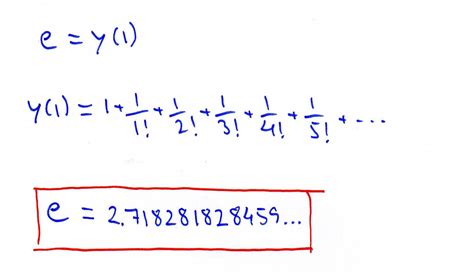 e = y(1)
y(1) = 1 + 1/1! + 1/2! + 1/3! + 1/4! + 1/5! + ...
e = 2.718281828459...